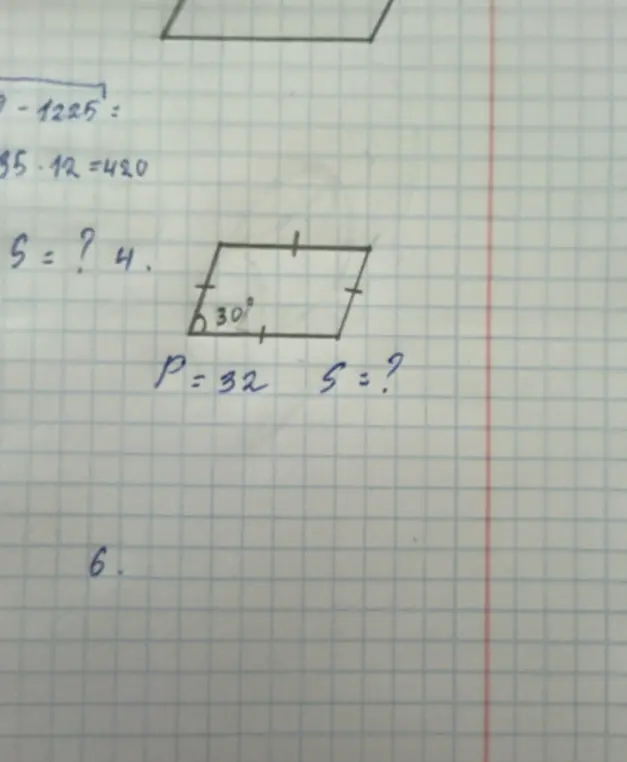 - 1225 =
35 · 12 = 420
S = ? 4.
30°
P = 32 S = ?
6.